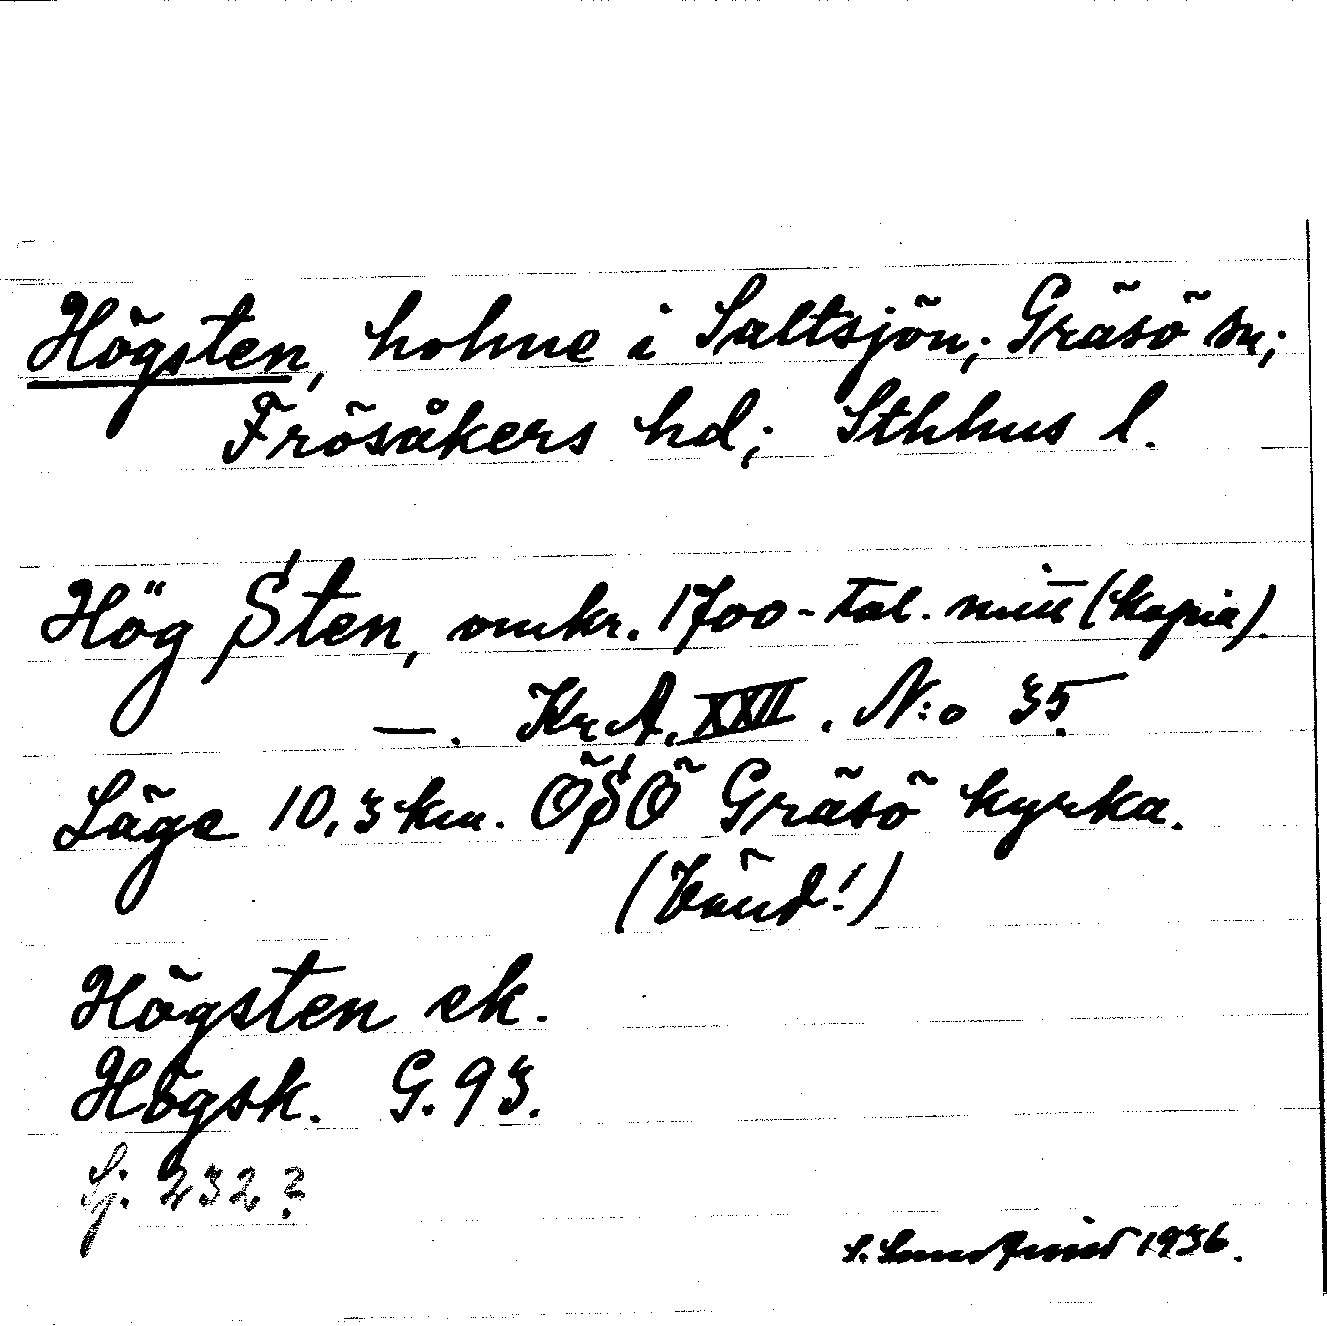 Högsten, holme i Saltsjön; Gräsö sn;
Frösåkers hd; Sthlms l.
Hög Sten, omkr. 1700-tal. mitt (kopia).
—. Kr.A. XXII. N:o 35.
Läge 10,3 km. ÖSÖ Gräsö kyrka.
(Vänd!)
Högsten ek.
Högsk. G. 93.
Sj. 232?
S. 1936.